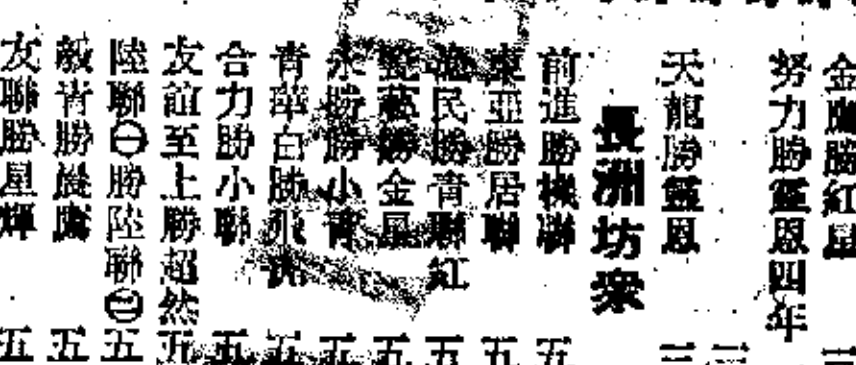 金鷹勝紅星 三
努力勝靈恩四年
三
天龍勝靈恩 三
長洲坊衆
前進勝機聯 五
東亞勝居聯 五
漁民勝青聯紅 五
藝勝金星 五
永勝勝小青 五
青華白勝飛 五
合力勝小聯 五
友誼至上勝超然 五
陸聯㊀勝陸聯㊁ 五
毅青勝晨鷹 五
友聯勝星輝 五